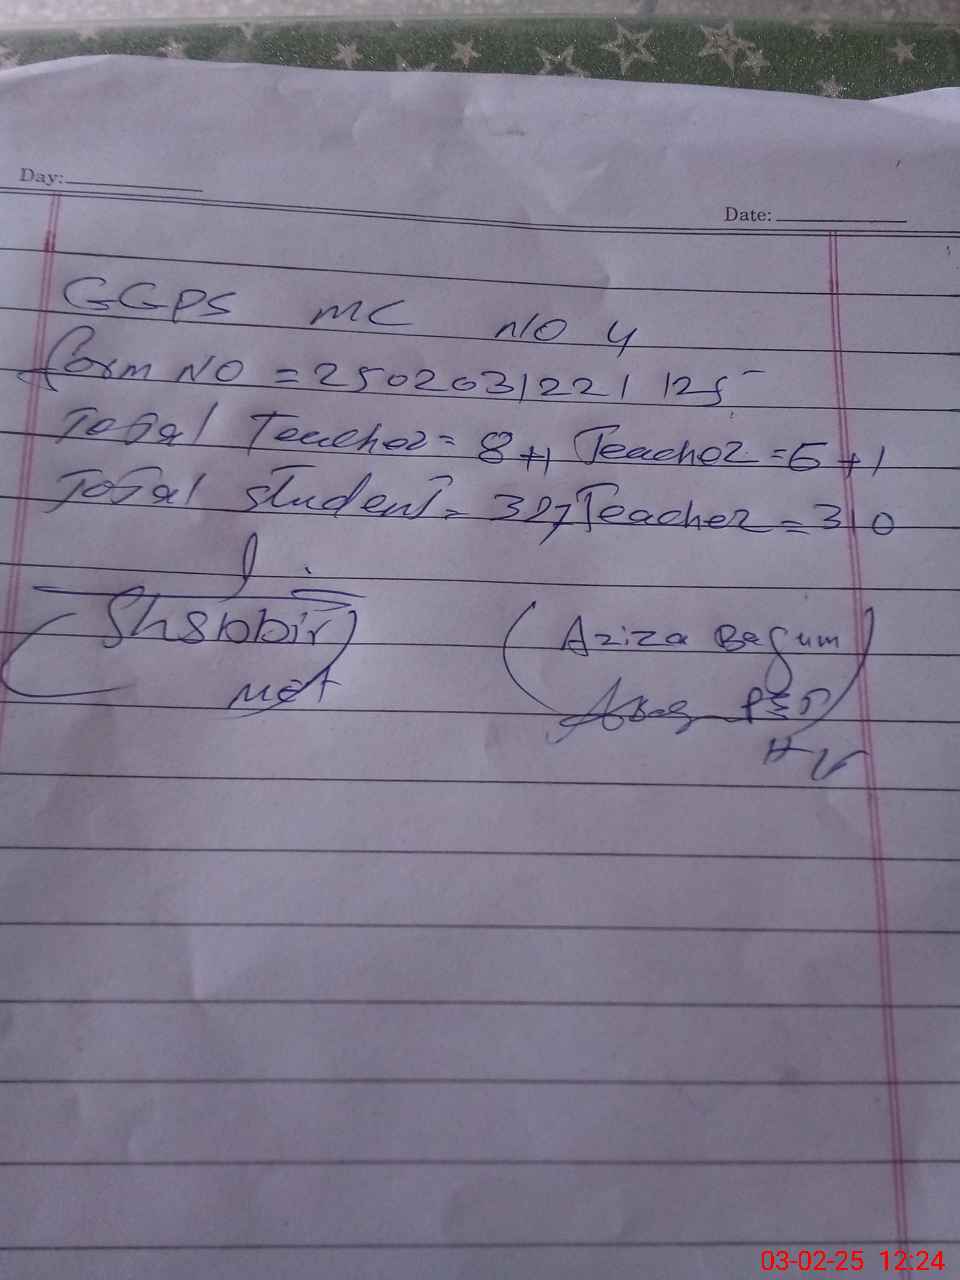 Day:
Date:
GGPS MC NO 4
form NO = 2502031221125
Total Teacher = 8+1 Teacher = 6+1
Total Student = 327 Teacher = 310
Shabbir
Aziza Begum
03-02-25 12:24